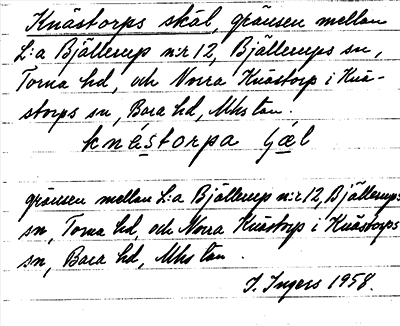 Knästorps skäl, gränsen mellan
L:a Bjällerup n:r 12, Bjällerups sn,
Torna hd, och Norra Knästorp i Knä-
storps sn, Bara hd, Mhs län.
knéstorpa
gränsen mellan L:a Bjällerup n:r 12, Bjällerups
sn, Torna hd, och Norra Knästorp i Knästorps
sn, Bara hd, Mhs län.
I. Ingers 1958.